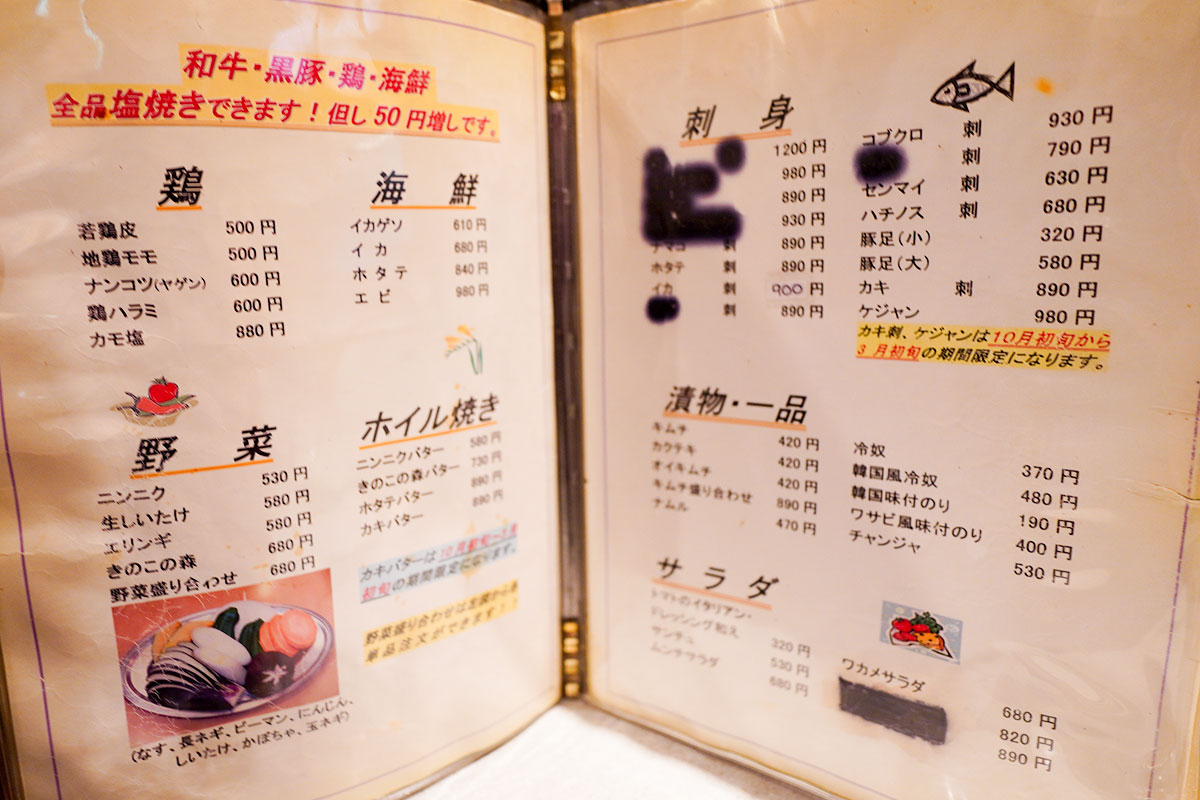 和牛・黒豚・鶏・海鮮
全品塩焼きできます！但し50円増しです。
鶏
若鶏皮 500円
地鶏モモ 500円
ナンコツ(ヤゲン) 600円
鶏ハラミ 600円
カモ塩 880円
海 鮮
イカゲソ 610円
イカ 680円
ホタテ 840円
エビ 980円
野 菜
ニンニク 530円
生しいたけ 580円
エリンギ 580円
きのこの森 680円
野菜盛り合わせ 680円
(なす、長ネギ、ピーマン、にんじん、
しいたけ、かぼちゃ、玉ネギ)
ホイル焼き
ニンニクバター 580円
きのこの森バター 730円
ホタテバター 890円
カキバター 890円
カキバターは10月初旬〜3月
初旬の期間限定になります。
野菜盛り合わせは
単品注文ができます！！
刺 身
1200円
980円
890円
930円
ナマコ 刺 890円
ホタテ 刺 890円
イカ 刺 900円
刺 890円
コブクロ 刺 930円
刺 790円
センマイ 刺 630円
ハチノス 刺 680円
豚足(小) 320円
豚足(大) 580円
カキ 刺 890円
ケジャン 980円
カキ刺、ケジャンは10月初旬から
3月初旬の期間限定になります。
漬物・一品
キムチ 420円
カクテキ 420円
オイキムチ 420円
キムチ盛り合わせ 890円
ナムル 470円
冷奴 370円
韓国風冷奴 480円
韓国味付のり 190円
ワサビ風味付のり 400円
チャンジャ 530円
サラダ
トマトのイタリアン・
ドレッシング和え 320円
サンチュ 530円
ムンチサラダ 680円
ワカメサラダ 680円
820円
890円